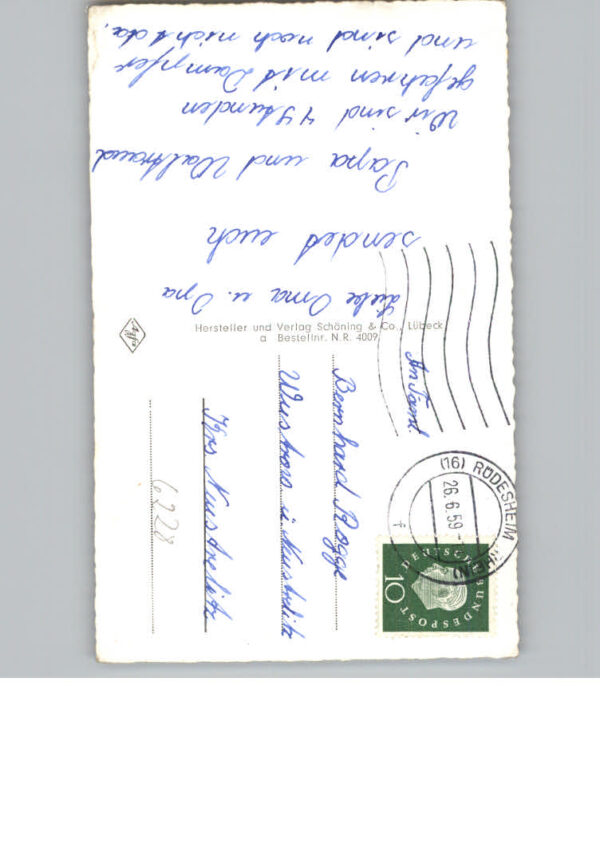 Liebe Oma u. Opa
sendet euch
Papa und Waltraud
Wir sind 4 Stunden
gefahren mit Dampfer
und sind noch nicht da.
Hersteller und Verlag Schöning & Co., Lübeck
a Bestellnr. N.R. 4009
Agfa
An Fam
Bernhard Rogge
Wustrow i. Neustrelitz
Krs Neustrelitz
6228
(16) RÜDESHEIM
26.6.59
f
DEUTSCHE BUNDESPOST
10